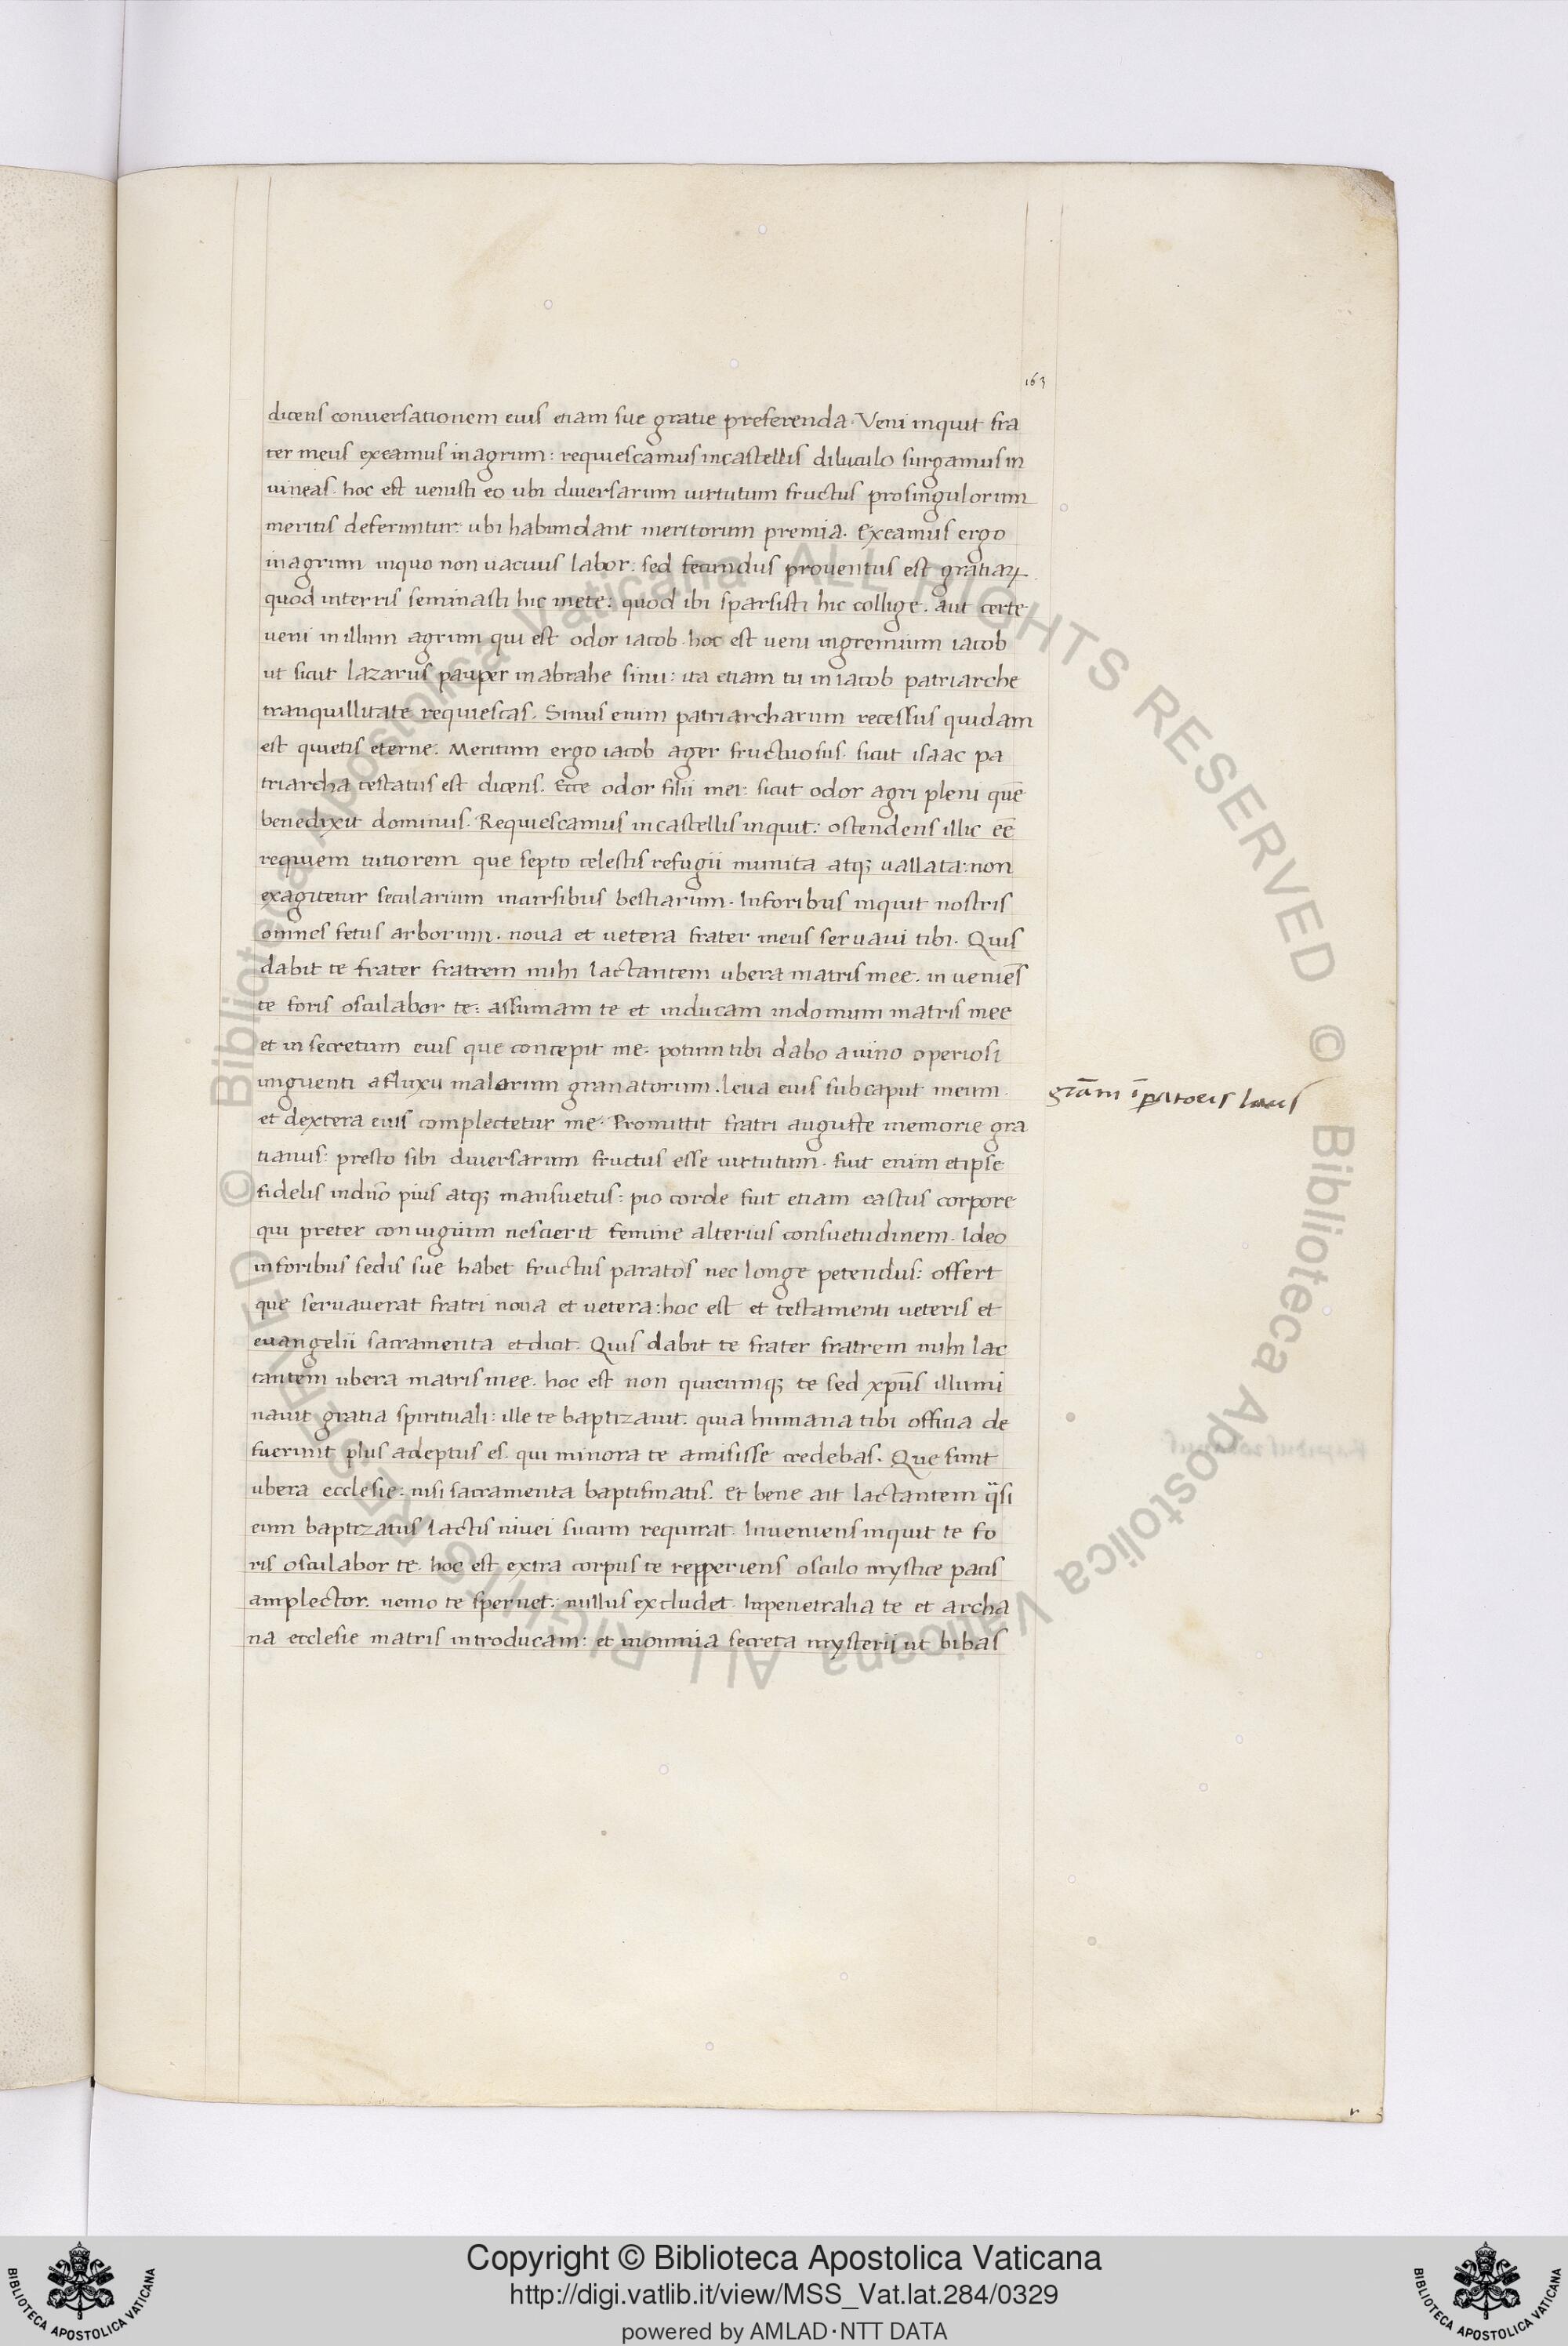 163
dicens conuersationem eius etiam sue gratie preferenda. Veni inquit fra
ter meus exeamus in agrum: requiescamus in castellis diluculo surgamus in
uineas. hoc est uenisti eo ubi diuersarum uirtutum fructus pro singulorum
meritis deferuntur: ubi habundant meritorum premia. Exeamus ergo
in agrum in quo non uacuus labor: sed fecundus prouentus est gratiaꝝ.
quod in terris seminasti hic mete: quod ibi sparsisti hic collige. aut certe
ueni in illum agrum qui est odor iacob. hoc est ueni in gremium iacob
ut sicut lazarus pauper in abrahe sinu: ita etiam tu in iacob patriarche
tranquillitate requiescas. Sinus enim patriarcharum recessus quidam
est quietis eterne. Meritum ergo iacob ager fructuosus. sicut isaac pa
triarcha testatus est dicens. Ecce odor filii mei: sicut odor agri pleni quē
benedixit dominus. Requiescamus in castellis inquit: ostendens illic eē
requiem tutiorem que septo celestis refugii munita atq; uallata: non
exagitetur secularium incursibus bestiarum. In foribus inquit nostris
omnes fetus arborum. noua et uetera frater meus seruaui tibi. Quis
dabit te frater fratrem mihi lactantem ubera matris mee. in ueniēs
te foris osculabor te: assumam te et inducam in domum matris mee
et in secretum eius que concepit me. potum tibi dabo a uino operiosi
unguenti a fluxu malorum granatorum. leua eius sub caput meum.
grām īꝑatoris laus
et dextera eius complectetur me. Promittit fratri auguste memorie gra
tianus: presto sibi diuersarum fructus esse uirtutum. fuit enim et ipse
fidelis in dn̄o pius atq; mansuetus: pio corde fuit etiam castus corpore
qui preter coniugium nescierit femine alterius consuetudinem. Ideo
in foribus sedis sue habet fructus paratos nec longe petendus: offert
que seruauerat fratri noua et uetera: hoc est et testamenti ueteris et
euangelii sacramenta et dicit. Quis dabit te frater fratrem mihi lac
tantem ubera matris mee. hoc est non quicumq; te sed xp̄us illumi
nauit gratia spirituali: ille te baptizauit. quia humana tibi offitia de
fuerunt plus adeptus es. qui minora te amisisse credebas. Que sunt
ubera ecclesie: nisi sacramenta baptismatis. Et bene ait lactantem q̈si
eum baptizatus lactis niuei sucum requirat. Inueniens inquit te fo
ris osculabor te. hoc est extra corpus te repperiens osculo mystice pacis
amplector. nemo te spernet: nullus excludet. In penetralia te et archa
na ecclesie matris introducam: et in omnia secreta mysterii ut bibas
© Biblioteca Apostolica Vaticana ALL RIGHTS RESERVED © Biblioteca Apostolica Vaticana ALL RIGHTS RESERVED
Copyright © Biblioteca Apostolica Vaticana
http://digi.vatlib.it/view/MSS_Vat.lat.284/0329
powered by AMLAD·NTT DATA
BIBLIOTECA APOSTOLICA VATICANA
BIBLIOTECA APOSTOLICA VATICANA